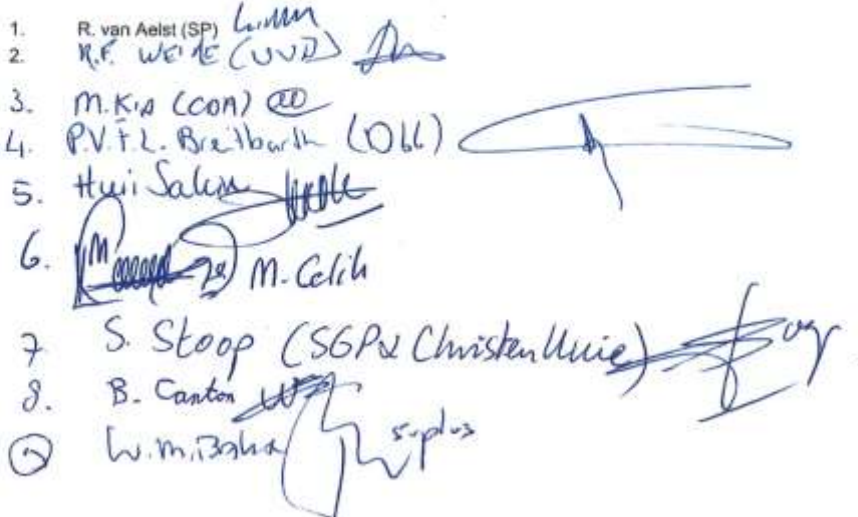 1. R. van Aelst (SP)
2. R.F. WEIJE (VVD)
3. M. Kip (CON)
4. P.V.F.L. Breitbarth (D66)
5. Huri Sahin
6. M. Celik
7 S. Stoop (SGP & ChristenUnie)
8. B. Canton
9 W.M.
50plus